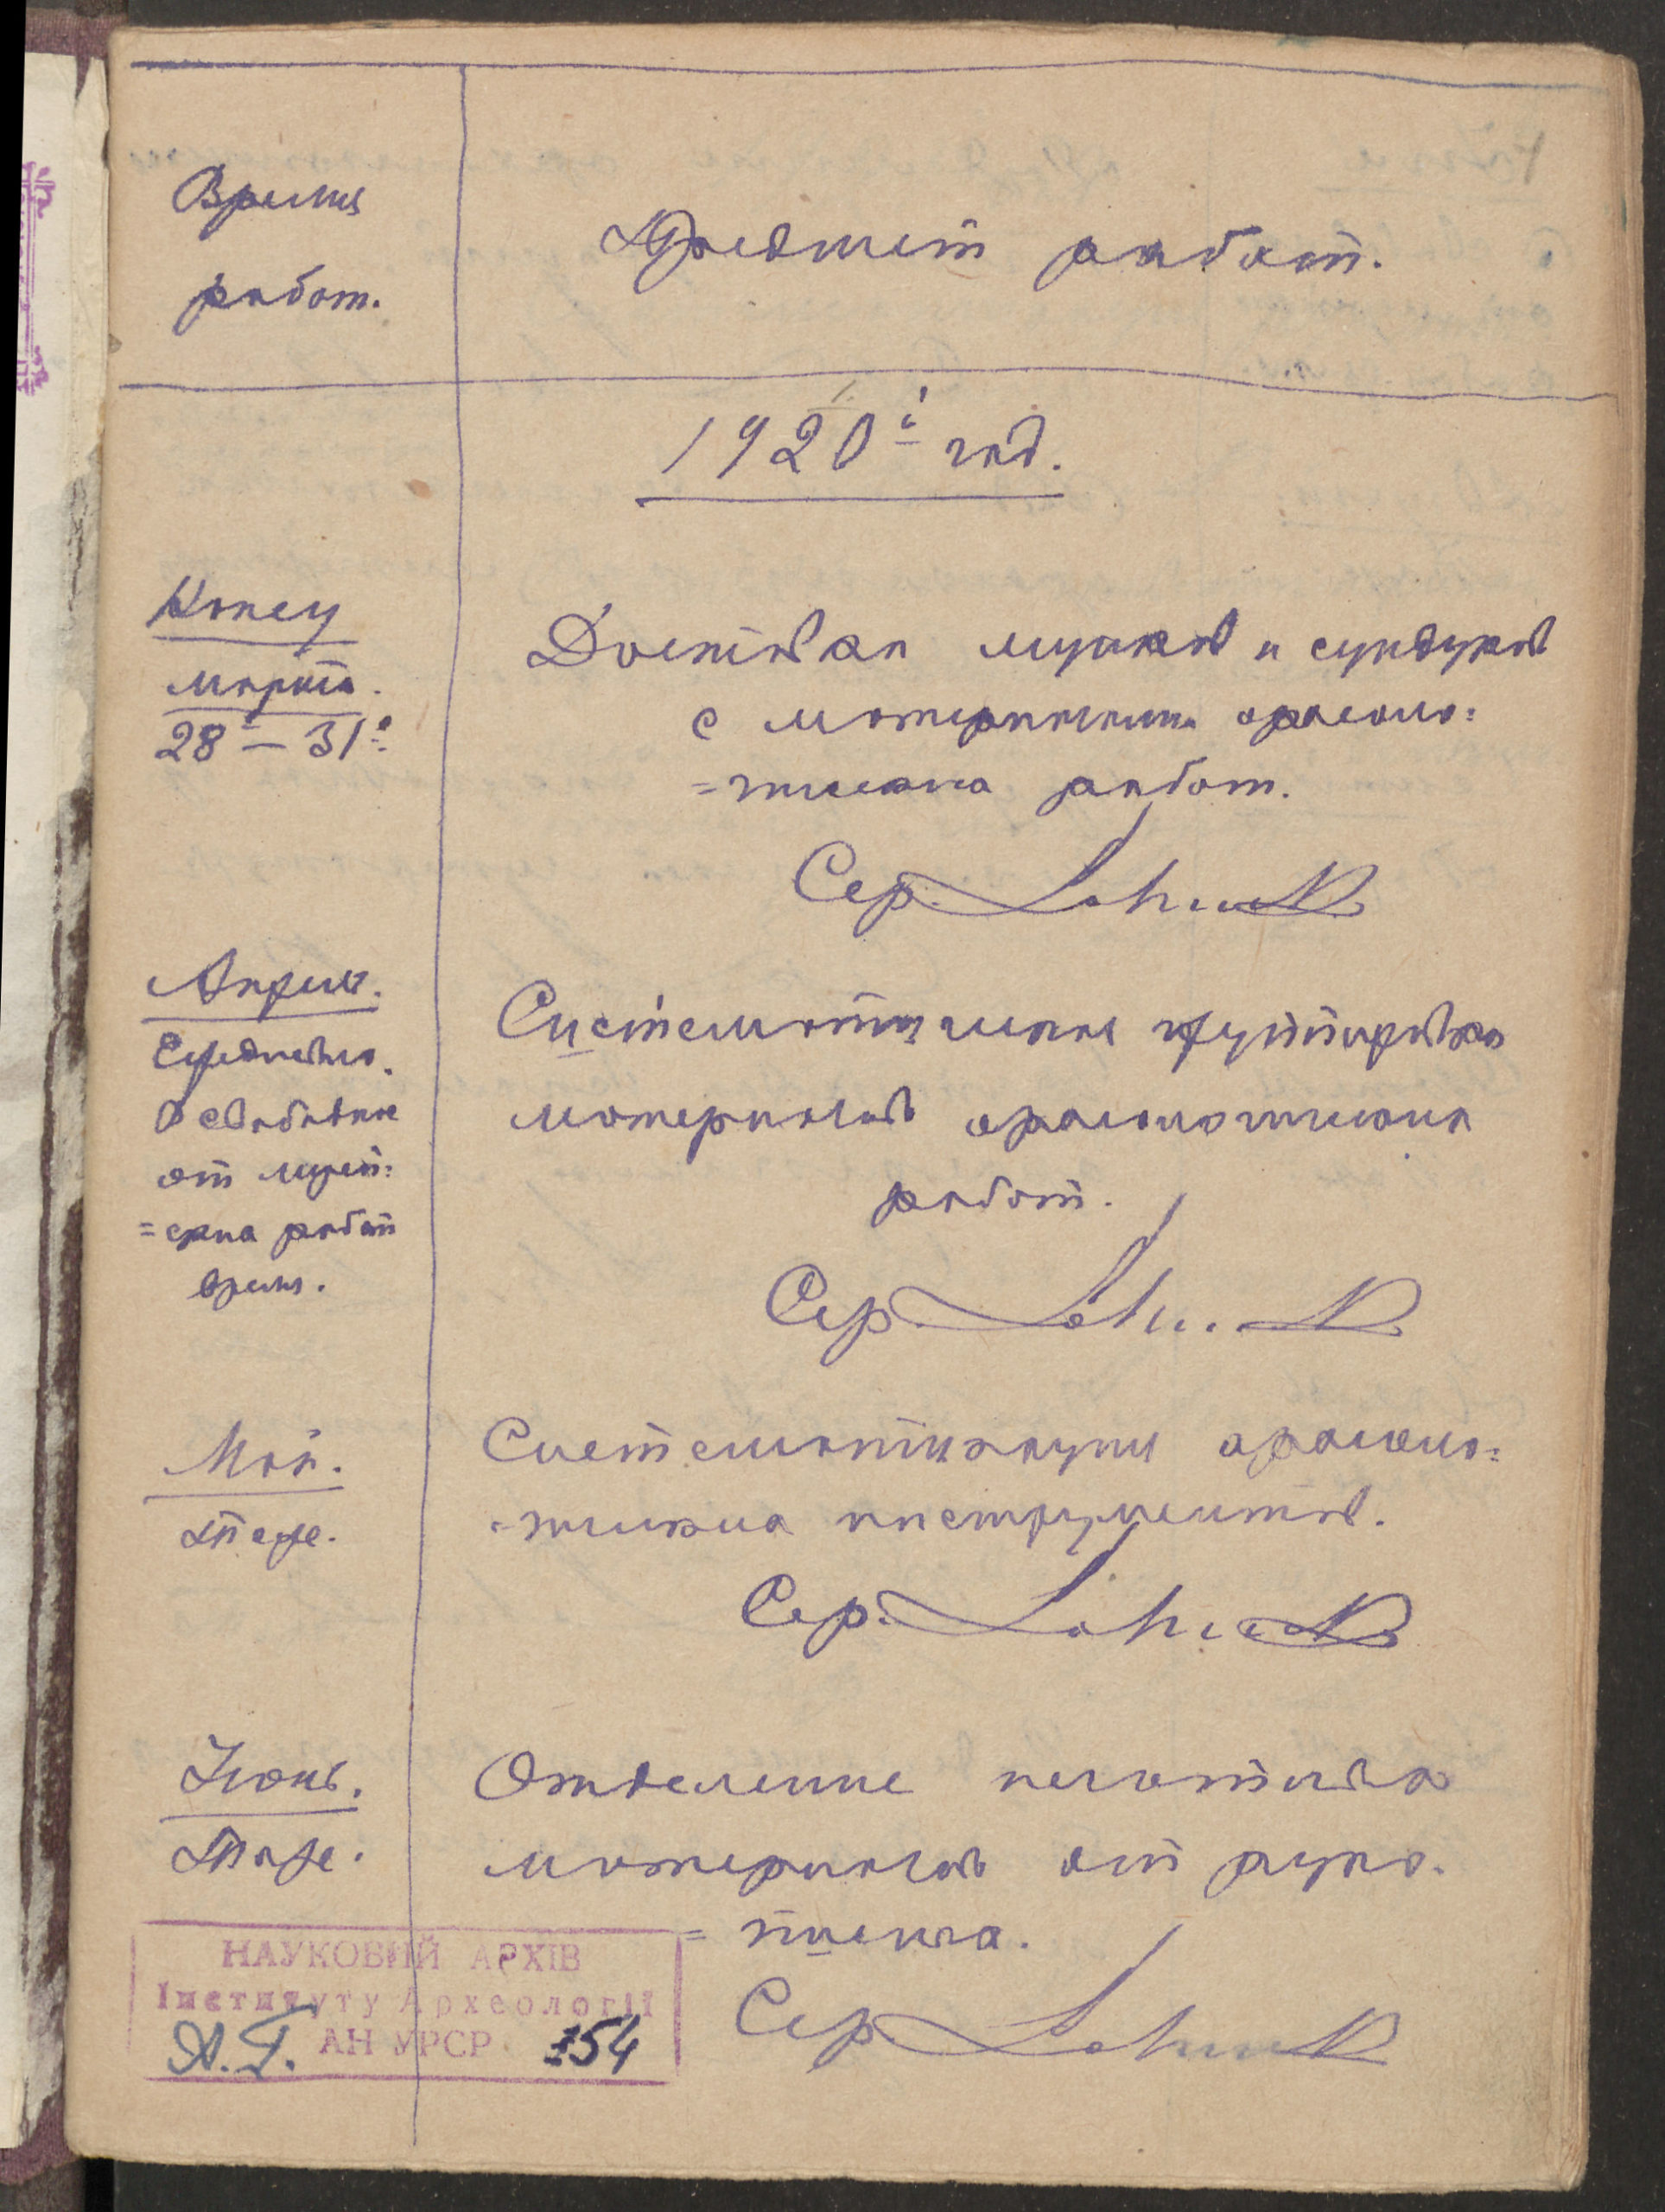 Время
работ.
Предмет работ.
1920й год.
Конец
марта.
28 – 31.
Доставка мешков и сундуков
с материалами археоло=
=гических работ.
Сер.
Апрель.
Ежедневно.
В свободное
от музей=
=ских работ
время.
Систематическая группировка
материалов археологических
работ.
Сер.
Май.
Тоже.
Систематизация археоло=
=гических инструментов.
Сер.
Июнь.
Тоже.
Отделение негативов
материалов от руко=
=писных.
Сер
НАУКОВИЙ АРХІВ
Інституту Археології
АН УРСР 154